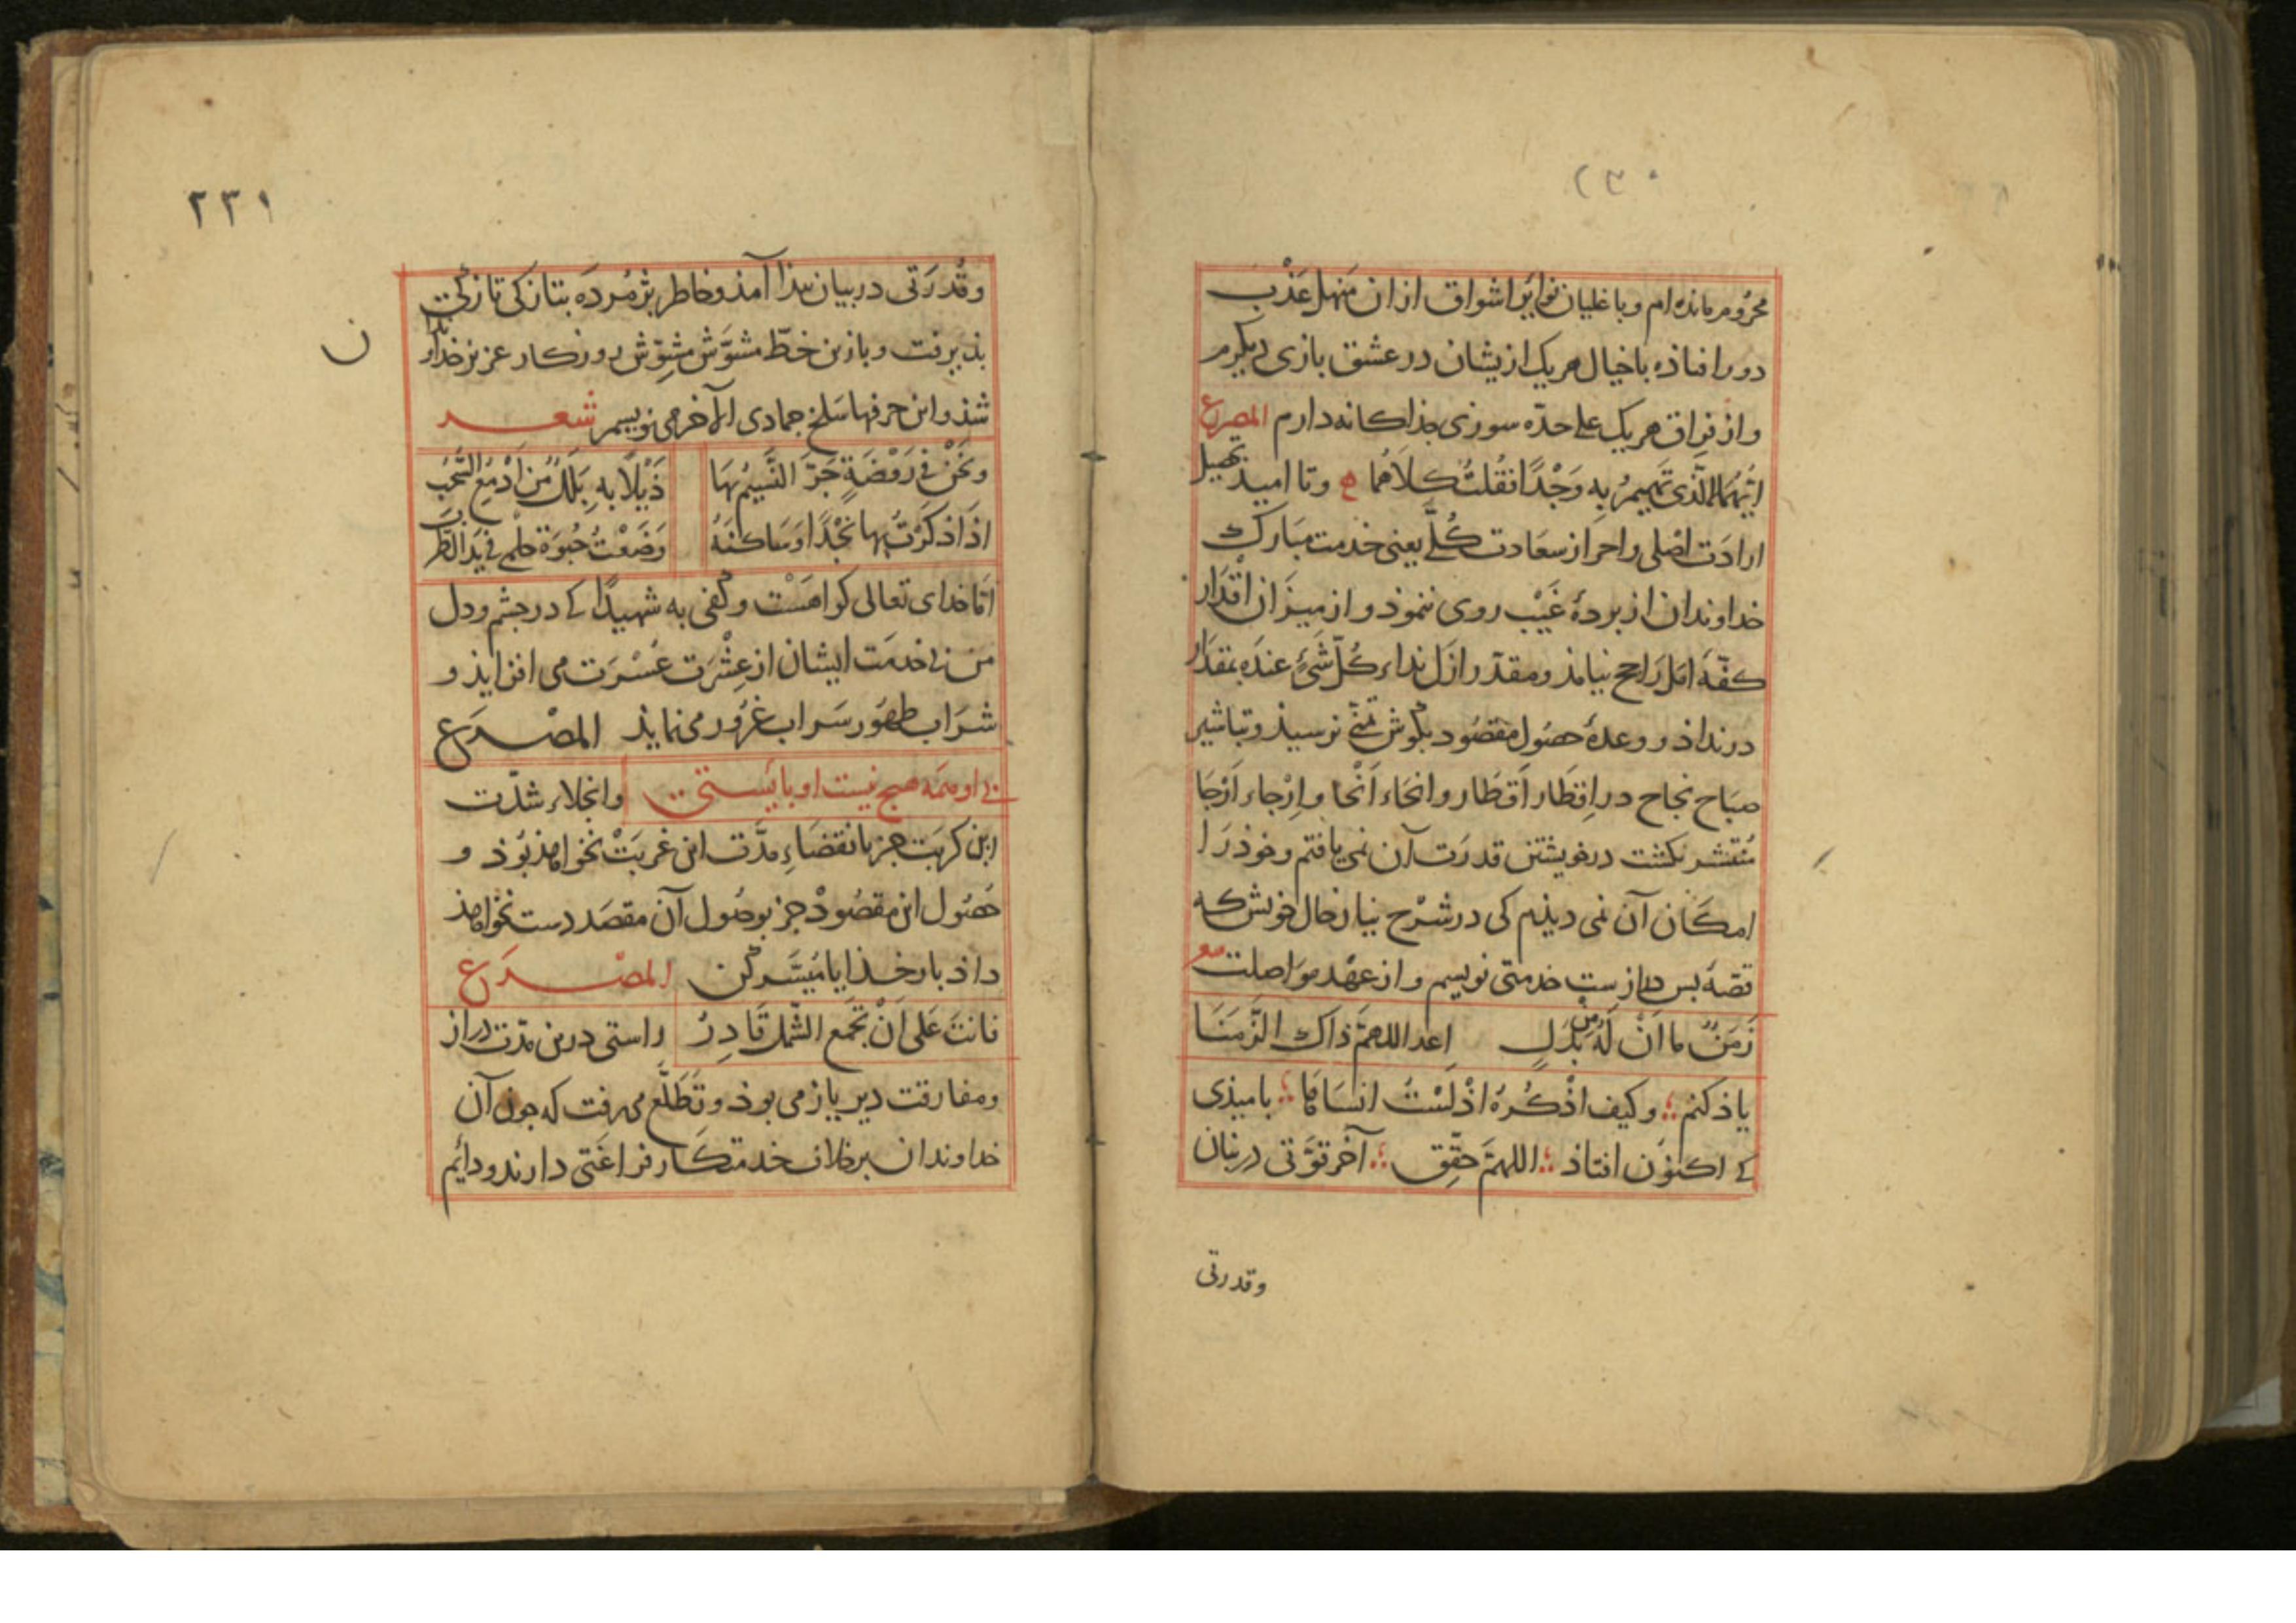 ۲۳۰
محروم مانده‌ام و با غلیان نوایر اشواق ازان منهل عَذْب
دور افتاذه با خیال هریک ازیشان در عشق بازی دیگرم
و از فراق هریک علی حدّه سوزی جذاکانه دارم المصرع
اَیّهُمَا الَّذی تَهیمُ بِهِ وَجْدًا فقُلتُ کلاَهُما و تا امید تحصیل
ارادَت اصْلی و احراز سعَادت کُلّی یعنی خدمت مبَارک
خداوندان از بردهٔ غَیْب روی ننموذ و از میزان اقْدَار
کفّهٔ امَل رَاجح نیامذ و مقدّر ازل نداء کُلّ شَیْءٍ عندَه بمقدَار
درنداذ و وعدهٔ حصُول مقصُود بکوش تمنّی نرسیذ و تباشیر
صبَاح نجَاح در اِقطَار اَقطَار و انحَاء اَنْحا و اِرْجاء اَرْجَا
مُنْتشر نکشت در خویشتن قدرَت آن نمی‌یافتم و خوذ رَا
امکان آن نمی دیذم کی در شرْح نیاز و حال خویش که
قصّهٔ بس دراز ست خدمتی نویسم و از عهْد موَاصلت مع
زَمَنٌ ما اَنْ لَهُ مِن بَدَلٍ اعد اللهمّ ذاک الزَّمَنَا
یاذ کنم وکیف اذْکُرُهُ اذْ لَسْتُ انسَاهُ تا بامیذی
کی اکنوُن افتاذ اللهمّ حقّق آخر قوَّتی در بنان
وقدرتی
۲۳۱
وقُدرَتی در بیان بیذا آمذ و خاطر بژمُردَه بتازکی تازکی
بذیرفت و بازین خطّ مشوَّش مشِوّش روزکار عزیز خداوندان
ن
شذ و این حرفها سَلخ جمادی الآخر می‌نویسم شعـــر
ونَحْنُ فی رَوْضَةٍ جَرَّ النَّسیمُ بهَا ذَیْلًا بهِ بَلَلٌ مِن اَدْمُعِ السُّحُبِ
اذَا ذکَرْتُ بها نَجْدًا وَسَاکنَهُ وَضَعْتُ حُبوَة حلْمی فی یَد الطَّرَبِ
امّا خدای تعالی کواهسْت وکفی به شهیدًا کی در جشم و دل
من بی خدمت ایشان از عِشْرَت عُسْرَت می افزایذ و
شرَاب طهُور سَراب غرُور می‌نمایذ المصْــرع
بی او همه هیج نیست او بایستی وانجلاء شدّت
این کربَت جز بانقضَاءِ مدَّت این غربَتْ نخواهذ بُوذ و
حُصُول این مقصُودْ جز بوصُول آن مقصَد دست نخواهذ
داذ بار خذایا مُیَسَّر کُن المصْــرع
فانتَ عَلی اَنْ تجْمَع الشّملَ قَادِرُ راستی درین مدّت دراز
ومفارقت دیر یاز می بوذ و تَطَلُّع می‌رفت که جون آن
خداوندان بر خلاف خدمتکار فراغتی دارند و دایُم